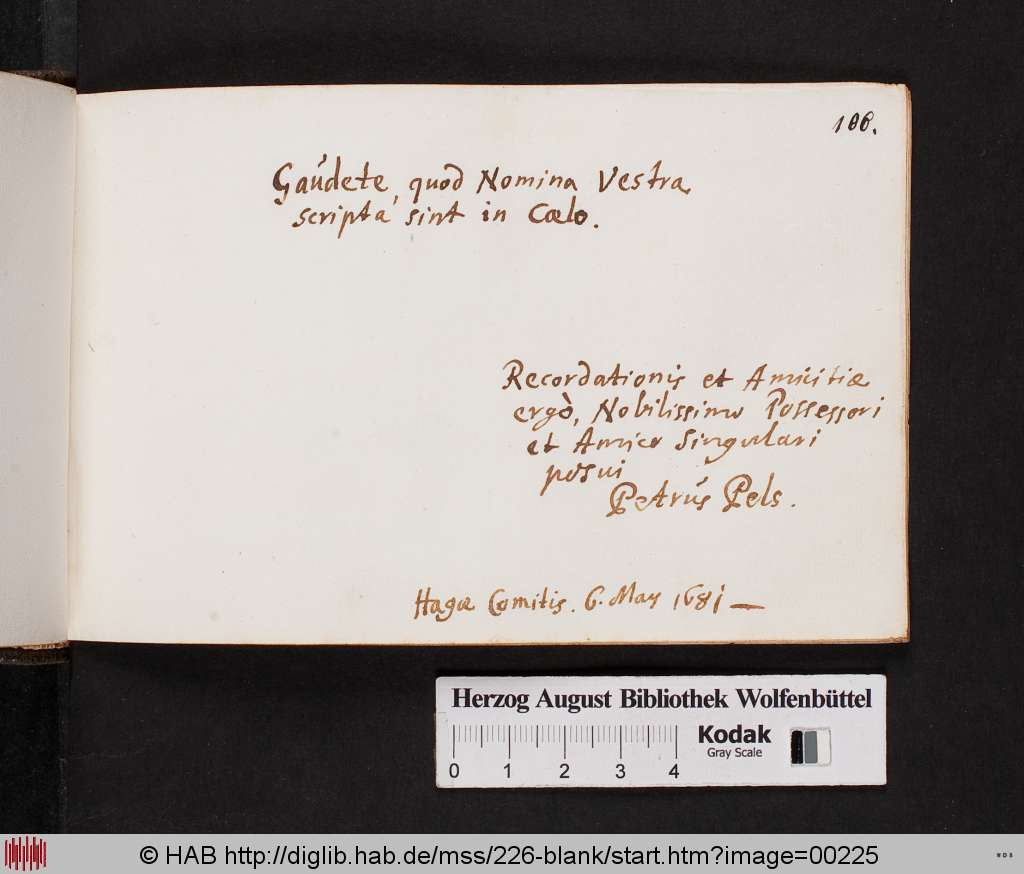 106.
Gaúdete, quod Nomina Vestra
scripta sint in Cœlo.
Recordationis et Amicitiæ
ergò, Nobilissimo Possessori
et Amico Singulari
posui
Petrús Pels.
Hagæ Comitis. 6. May 1681 —
Herzog August Bibliothek Wolfenbüttel
Kodak
Gray Scale
0 1 2 3 4
© HAB http://diglib.hab.de/mss/226-blank/start.htm?image=00225
WDB